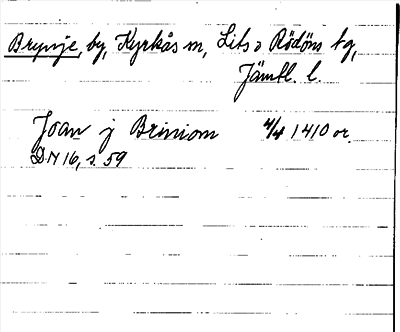 Brynje, by, Kyrkås sn, Lits o Rödöns tg,
Jämtl. l.
Joan j Briniom 4/4 1410 or.
DN 16, s. 59